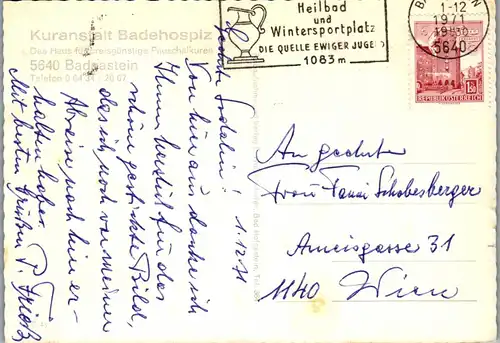 Kuranstalt Badehospiz
Das Haus für preisgünstige Pauschalkuren
5640 Badgastein
Telefon 0 64 34 - 26 07
Heilbad
und
Wintersportplatz
DIE QUELLE EWIGER JUGEND
1083 m
1-12
1971
5640
REPUBLIK ÖSTERREICH
1.12.71
Von hier aus danke ich
Ihnen herzlich für das
schön gestickte Bild,
das ich noch vor meiner
Abreise nach hier er-
halten habe.
Mit besten Grüßen P.
An geehrte
Frau Fanni Schobesberger
Ameisgasse 31
1140 Wien